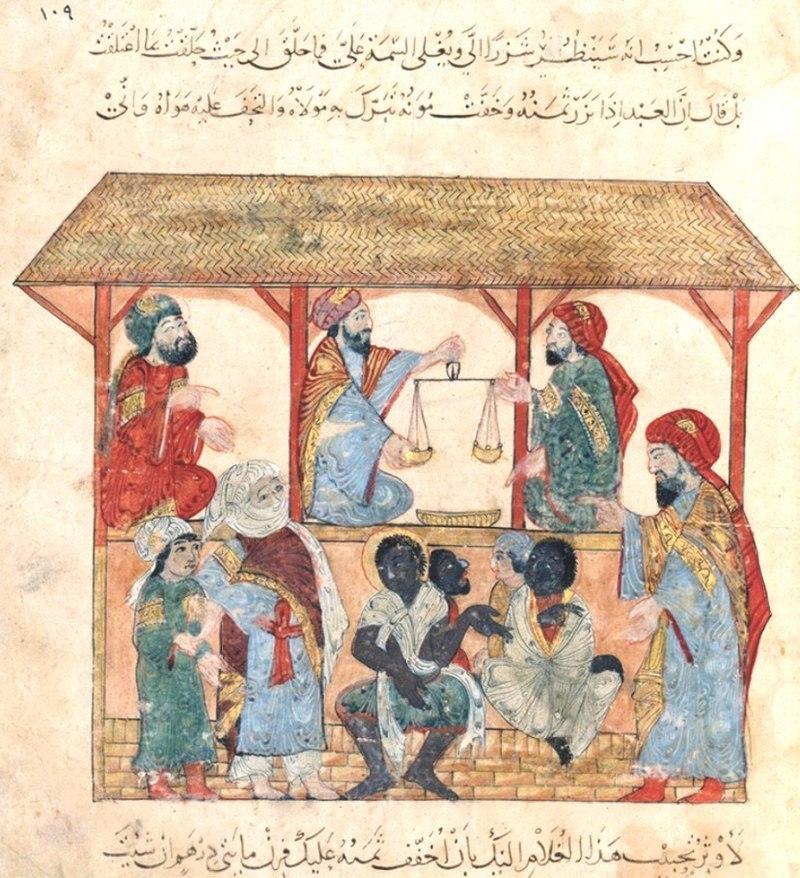 ١٠٩
وكنت احسب انه سينظر شزرا الي ويغلي السيمة علي فما حلق الى حيث حلقت اعتلقت
بل قال ان العبد اذا نزر ثمنه وخفت مونه تبرك به مولاه والتحف عليه هواه واني
لاوثر تحبيب هذا الغلام اليك بان اخفف ثمنه عليك فزن مايتي درهم ان شيت